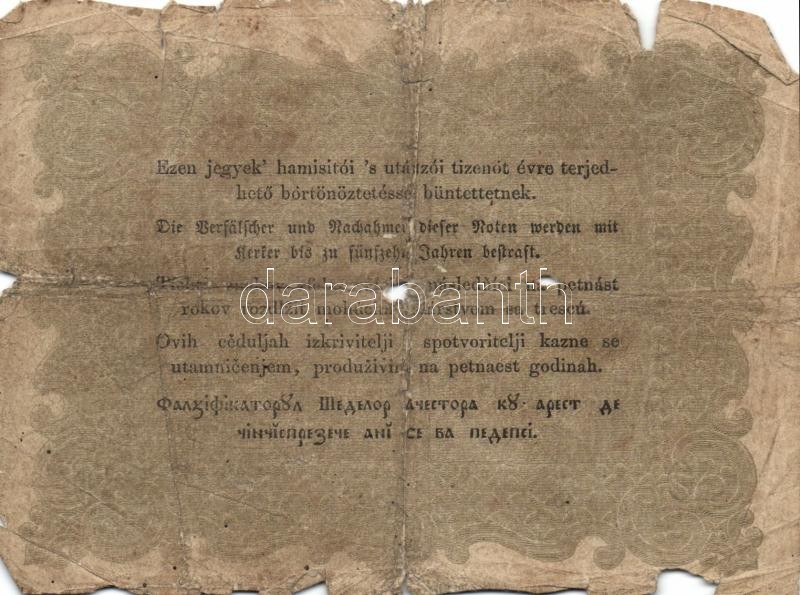 Ezen jegyek' hamisitói 's utánzói tizenöt évre terjed-
hető börtönöztetéssel büntettetnek.
Die Verfälscher und Nachahmer dieser Noten werden mit
Kerker bis zu fünfzehn Jahren bestraft.
na petnást
rokov
se trescú.
darabanth
Ovih cěduljah izkrivitelji spotvoritelji kazne se
utamničenjem, produživim na petnaest godinah.
Фалзіфікаторꙋл Шеделор Ачестора кꙋ арест де
чінчіспрезече ані се ва педепсі.